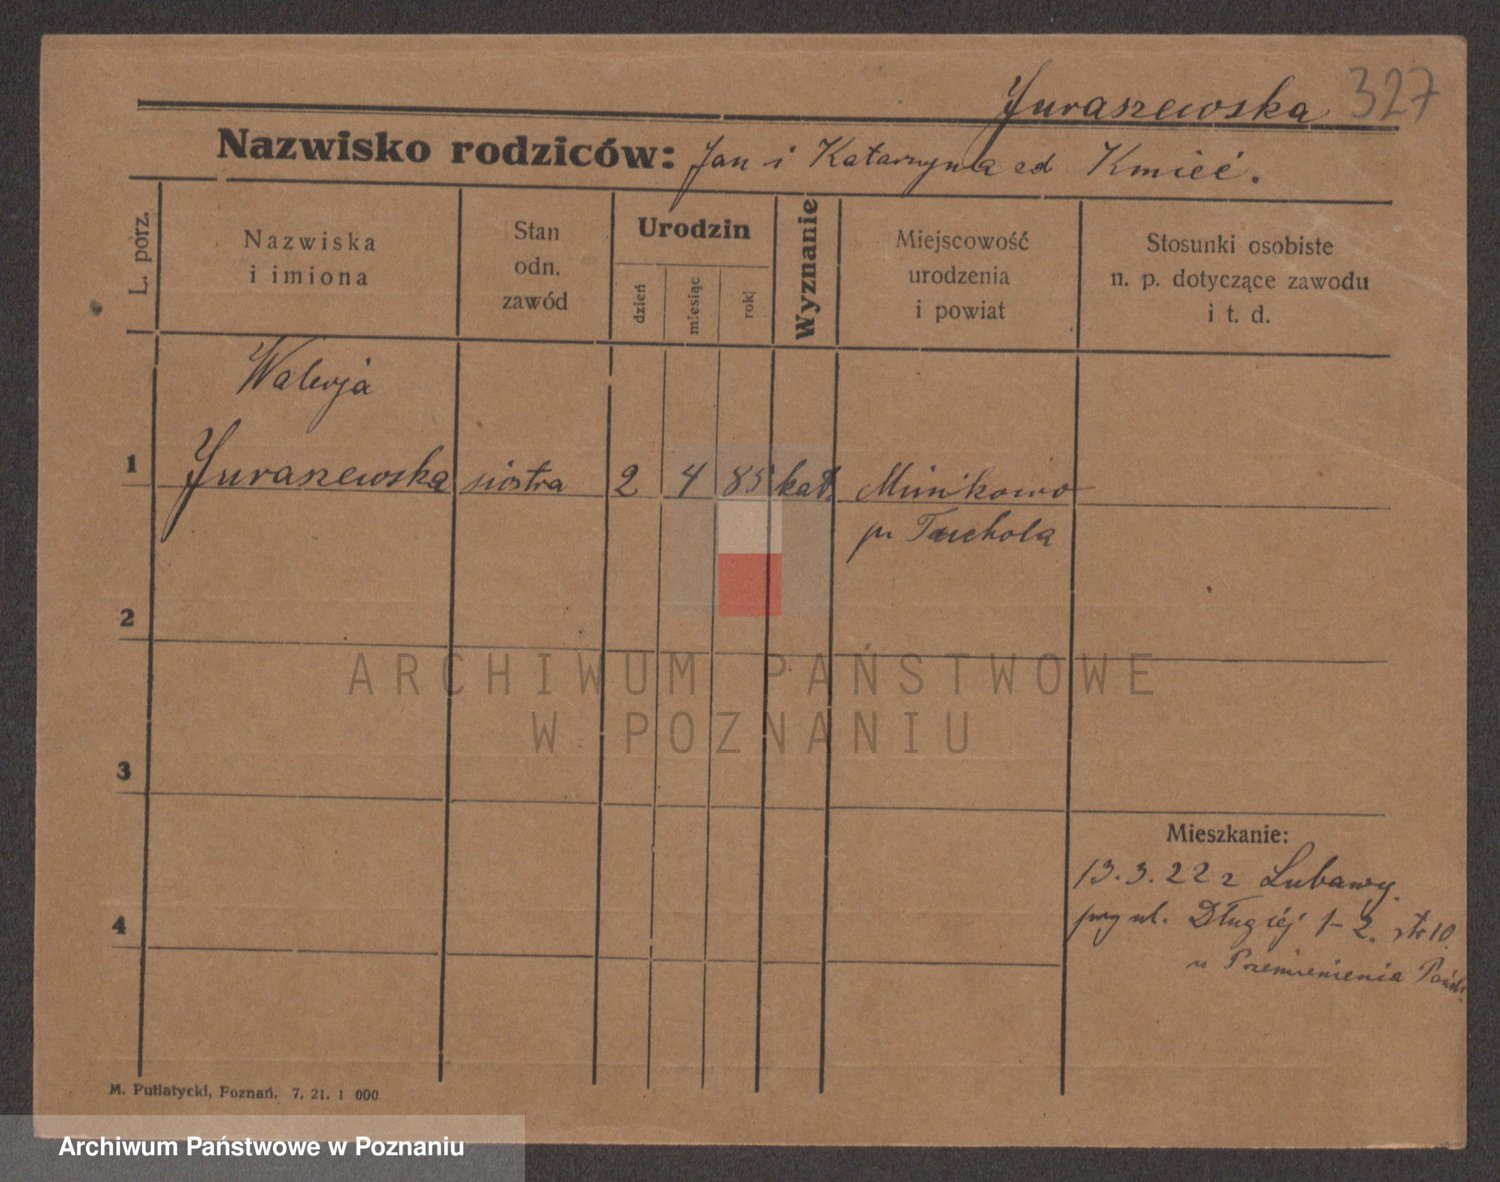 Juraszewska 327
Nazwisko rodziców: Jan i Katarzyna zd Kmieć.
L. porz.
Nazwiska
i imiona
Stan
odn.
zawód
Urodzin
dzień
miesiąc
rok
Wyznanie
Miejscowość
urodzenia
i powiat
Stosunki osobiste
n. p. dotyczące zawodu
i t. d.
Walerja
1 Juraszewska siostra 2 4 85 kat. Minikowo
p. Tuchola
2
ARCHIWUM PAŃSTWOWE
W POZNANIU
3
Mieszkanie:
13.3.22 z Lubawy
przy ul. Długiej 1-2.
4
u Przemienienia Pańsk.
M. Putiatycki, Poznań. 7. 21. 1 000
Archiwum Państwowe w Poznaniu